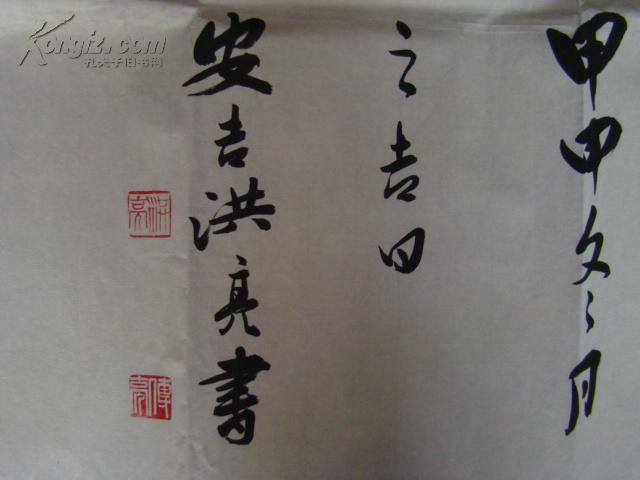 甲申冬月
之吉日
安吉洪亮书
洪亮
Kongfz.com
孔夫子旧书网